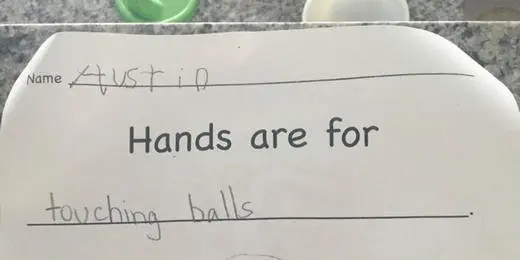 Name Austin
Hands are for
touching balls.